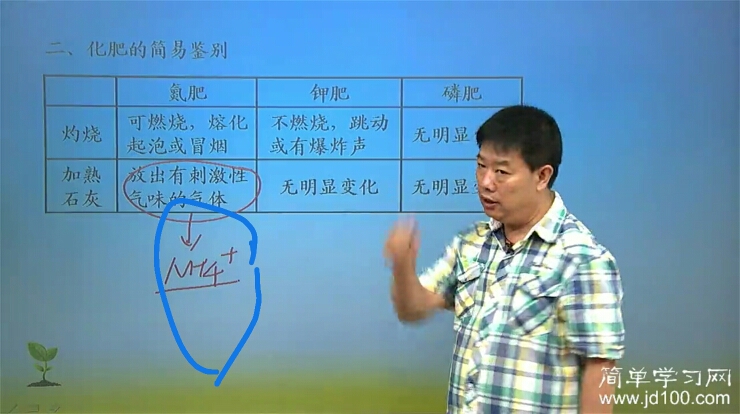 二、化肥的简易鉴别
氮肥 钾肥 磷肥
灼烧 可燃烧，熔化 不燃烧，跳动 无明显
起泡或冒烟 或有爆炸声
加热 放出有刺激性 无明显变化 无明显
石灰 气味的气体
NH4+
简单学习网
www.jd100.com